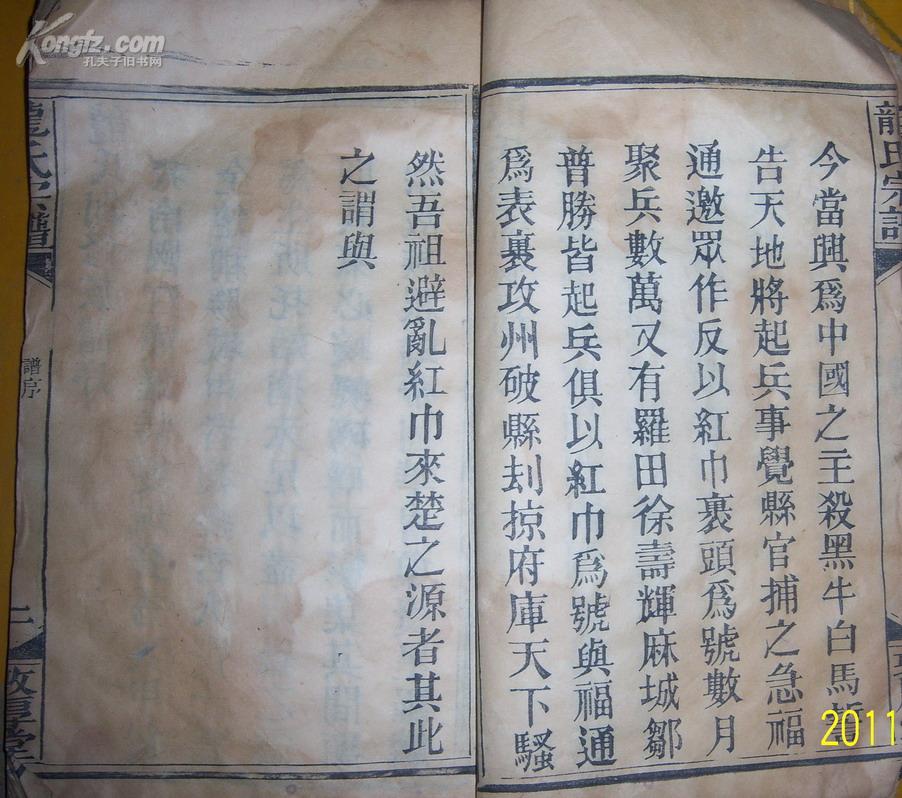 Kongfz.com
孔夫子旧书网
龍氏宗譜
今當興爲中國之主殺黑牛白馬誓
告天地將起兵事覺縣官捕之急福
通邀眾作反以紅巾裹頭爲號數月
聚兵數萬又有羅田徐壽輝麻城鄒
普勝皆起兵俱以紅巾爲號與福通
爲表裏攻州破縣刦掠府庫天下騷
然吾祖避亂紅巾來楚之源者其此
之謂與
龍氏宗譜
譜序
敦厚堂
2011